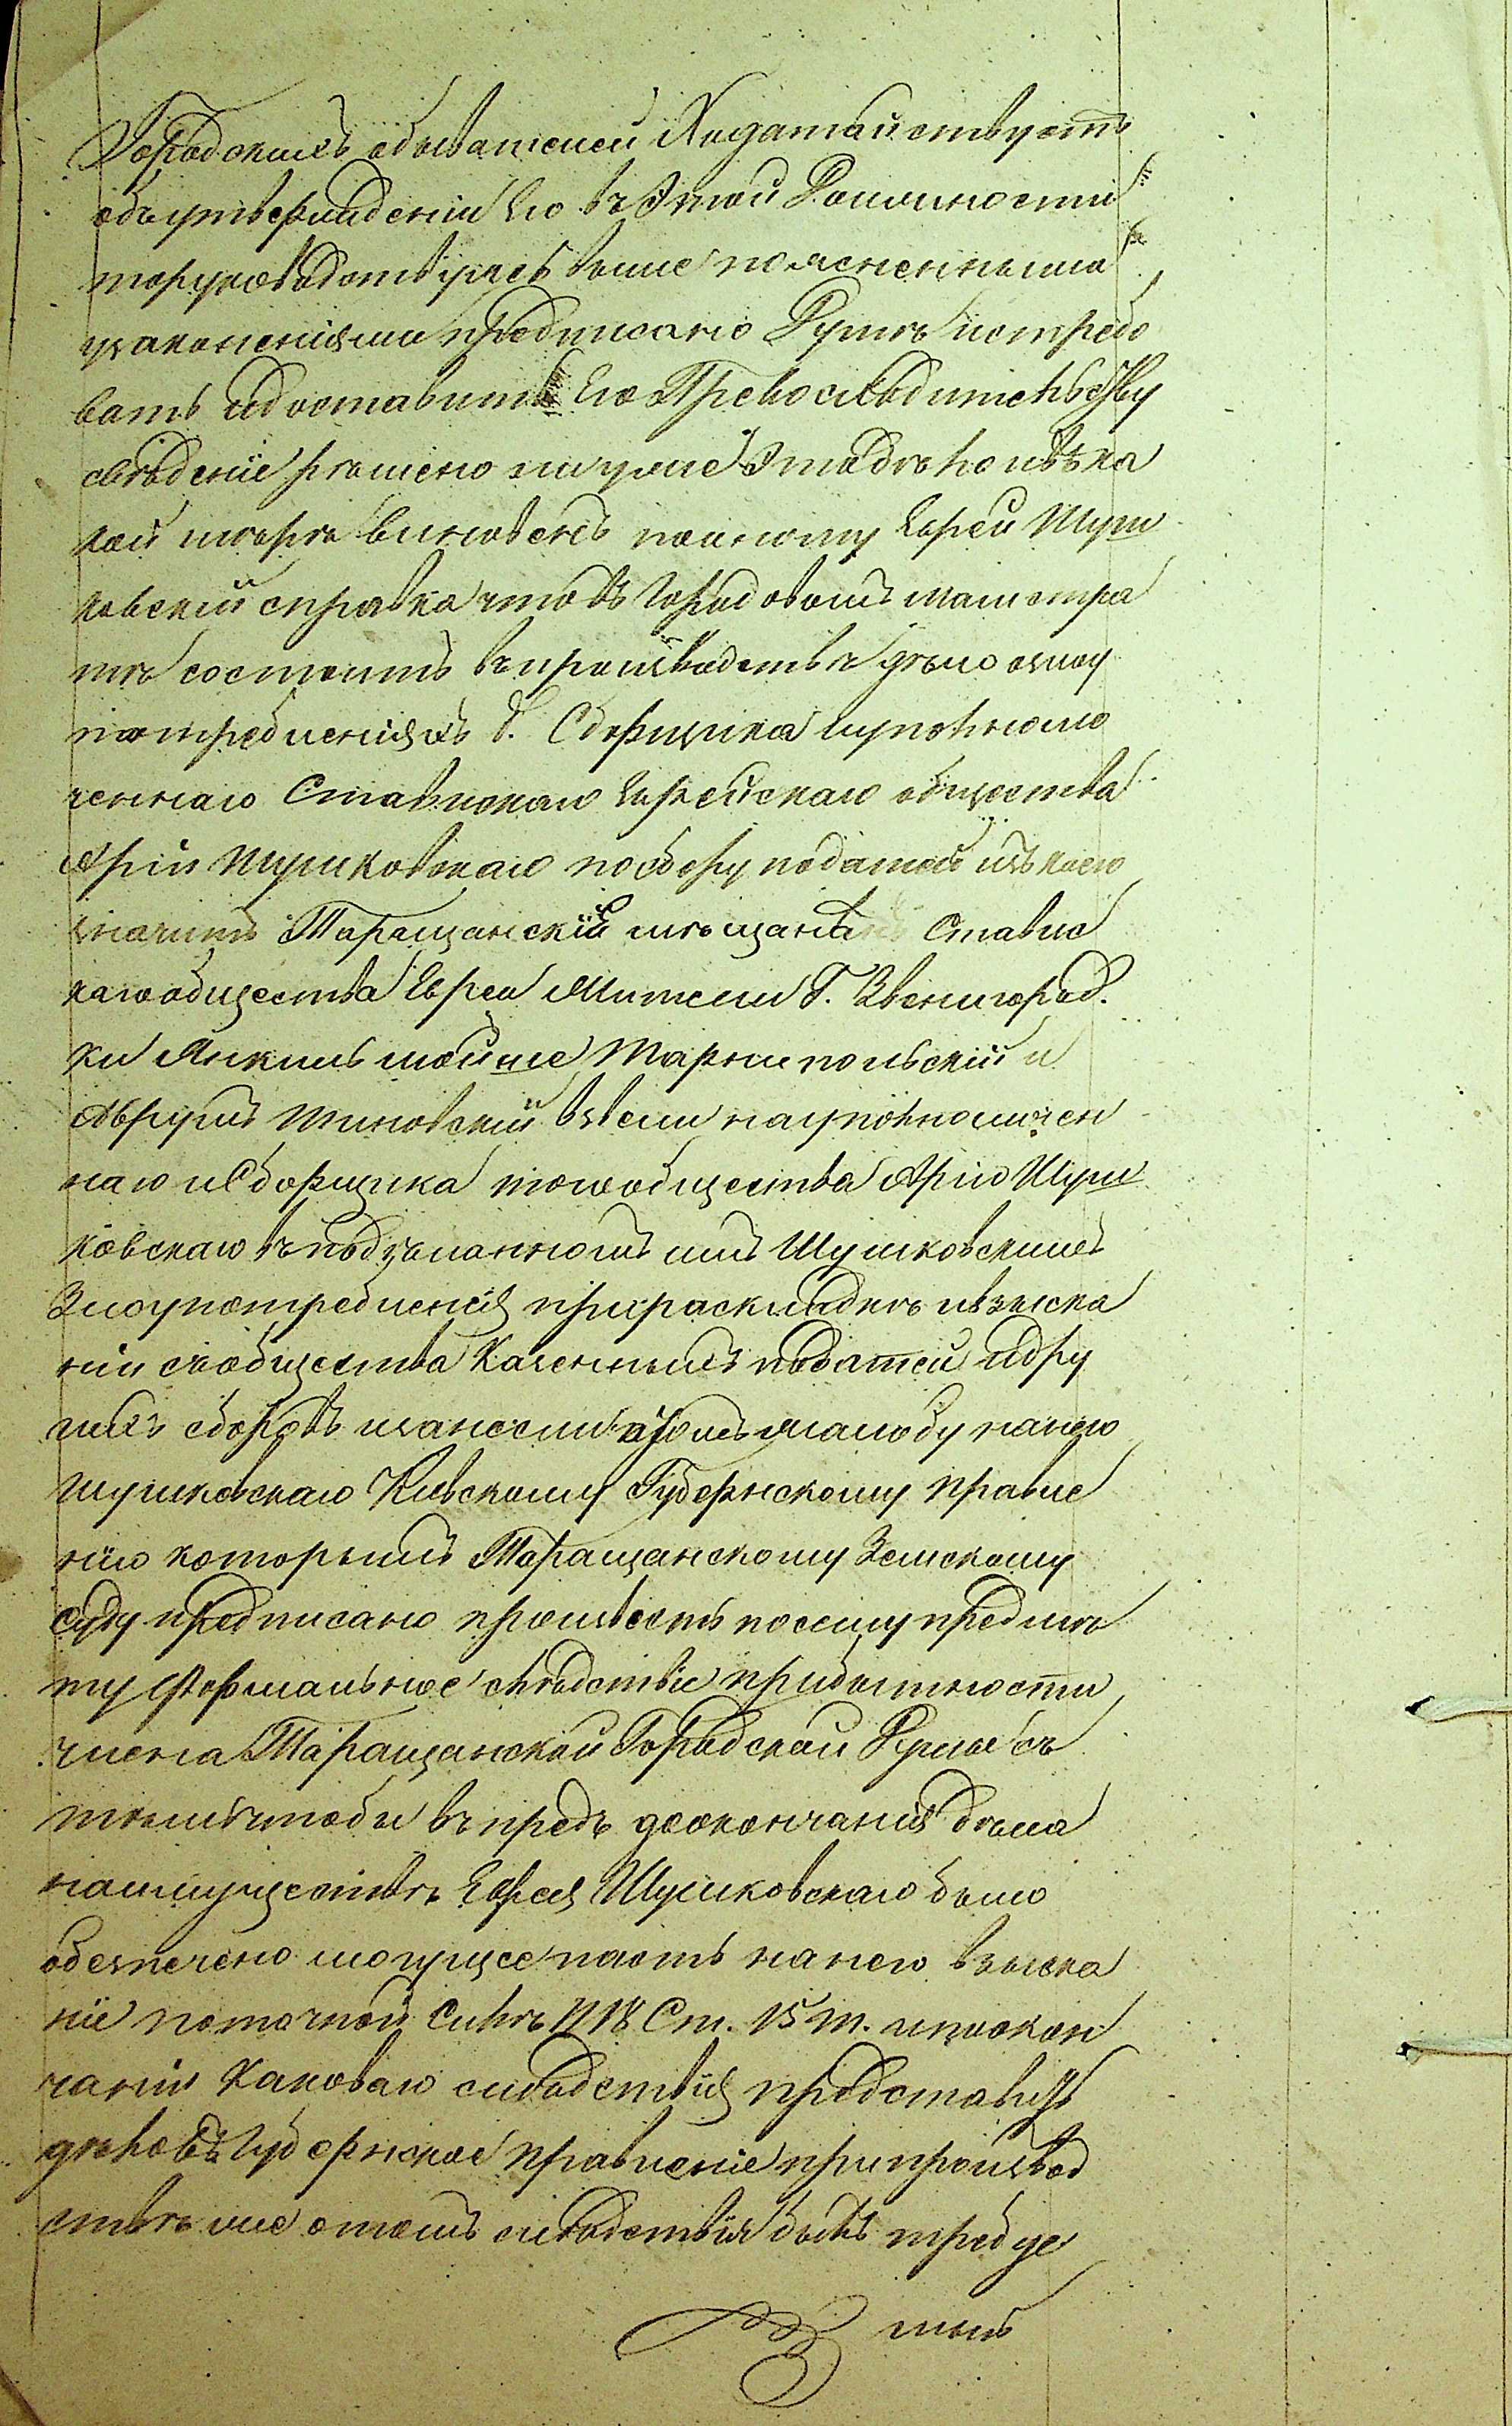 Городскихъ обывателей Ходатайствуетъ
объ утвержденіи Его въ Этой Должности
то руководствуясь выше поясненными
узаконеніями предписано Думѣ истребо
вать и доставить Его Превосходительству
свѣденіе рѣшено ли уже Это дѣло и въ ка
кой мѣрѣ виновенъ по оному Еврей Шум
ковскій справка что въ Городовомъ магистра
тѣ состоитъ въ производствѣ дѣло о злоу
потребленіяхъ б. Сборщика и уполномо
ченнаго Ставискаго Еврейскаго общества
Арія Шумковскаго по сбору податей изъ коего
значитъ Таращанскій мѣщанинъ Ставис
каго общества Евреи Жители Г. Звенигород.
ки Янкель Мойше Тарнопольскій и
Аврумъ Шиновскій взвели на уполномочен
наго и Сборщика того общества Арію Шум
ковскаго въ подѣланномъ имъ Шумковскимъ
Злоупотребленія при раскладкѣ и взыска
ніи съ общества Казенныхъ податей и дру
гихъ сборовъ и занесли о томъ жалобу на него
Шумковскаго Кіевскому Губернскому Правле
нію которымъ Таращанскому Земскому
Суду предписано произвесть по сему предмѣ
ту Формальное слѣдствіе при бытности
члена Таращанской Городской Думы съ
тѣмъ чтобы въ предь до окончанія дѣла
на имуществѣ Еврея Шумковскаго было
обезпечено могущее пасть на него взыска
ніе по точной силѣ 1118 Ст. 15 т. и по окон
чаніи каковаго слѣдствія представить
дѣло въ Губернское Правленіе при производ
ствѣ же о томъ слѣдствія бывъ требуе
мымъ